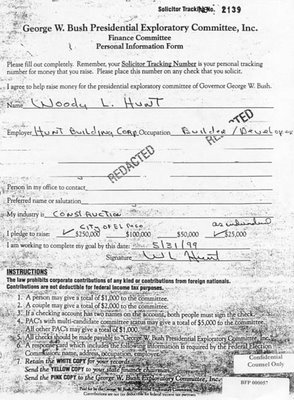 Solicitor Tracking No. 2139
George W. Bush Presidential Exploratory Committee, Inc.
Finance Committee
Personal Information Form
Please fill out completely. Remember, your Solicitor Tracking Number is your personal tracking
number for money that you raise. Please place this number on any check that you solicit.
I agree to help raise money for the presidential exploratory committee of Governor George W. Bush.
Name Woody L. Hunt
Employer Hunt Building Corp. Occupation Builder/Developer
REDACTED
REDACTED
Person in my office to contact
Preferred name or salutation
My industry is Construction
City of El Paso as individual
I pledge to raise: ✓ $250,000 $100,000 $50,000 ✓ $25,000
I am working to complete my goal by this date: 5/31/99
Signature WL Hunt
INSTRUCTIONS
The law prohibits corporate contributions of any kind or contributions from foreign nationals.
Contributions are not deductible for federal income tax purposes.
1. A person may give a total of $1,000 to the committee.
2. A couple may give a total of $2,000 to the committee.
3. If a checking account has two names on the account, both people must sign the check.
4. PACs with multi-candidate committee status may give a total of $5,000 to the committee.
All other PACs may give a total of $1,000.
5. All checks should be made payable to "George W. Bush Presidential Exploratory Committee,
6. A response card which includes the following information is required by the Federal Election
Commission: name, address, occupation, employer
Retain the WHITE COPY for your records.
Send the YELLOW COPY to your state finance
Send the PINK COPY to the George W. Bush Exploratory Committee, Inc.
Paid for by the George W. Bush Presidential Exploratory Committee, Inc.
Confidential
Counsel Only
BFP 000057